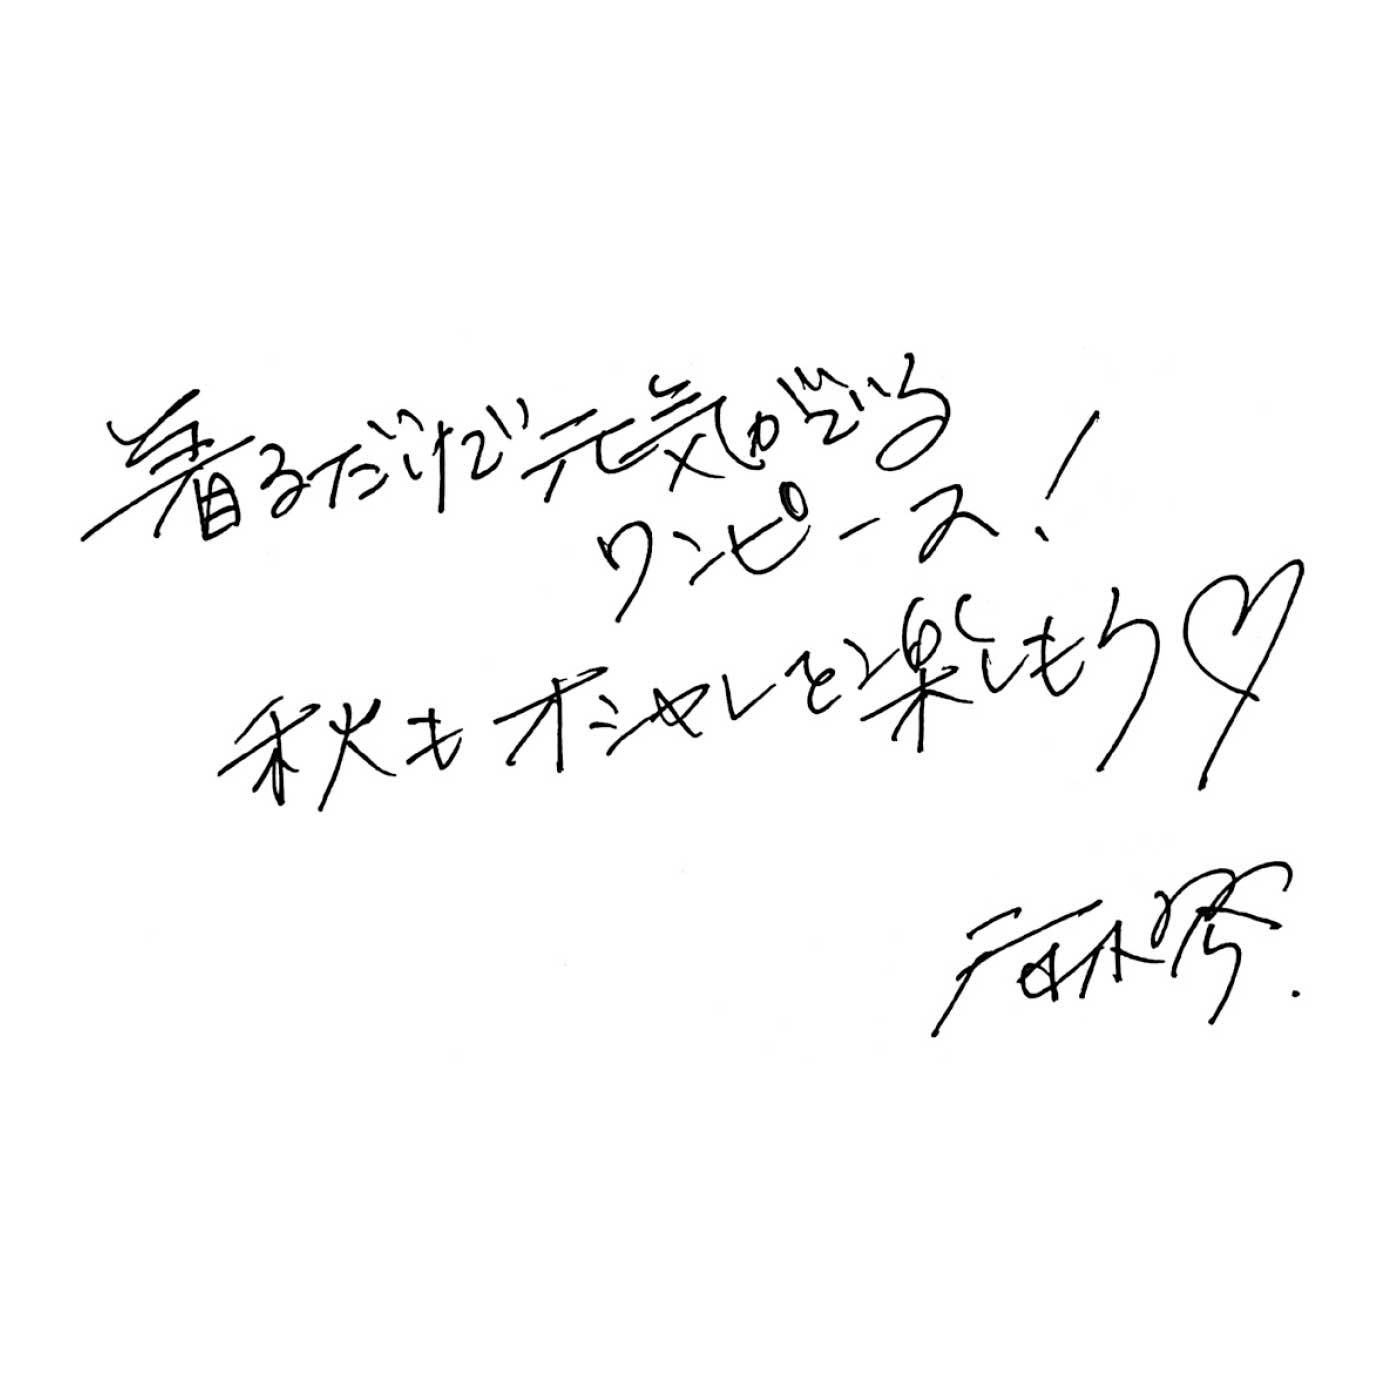 着るだけで元気がでる
ワンピース!
秋もオシャレを楽しもう♡